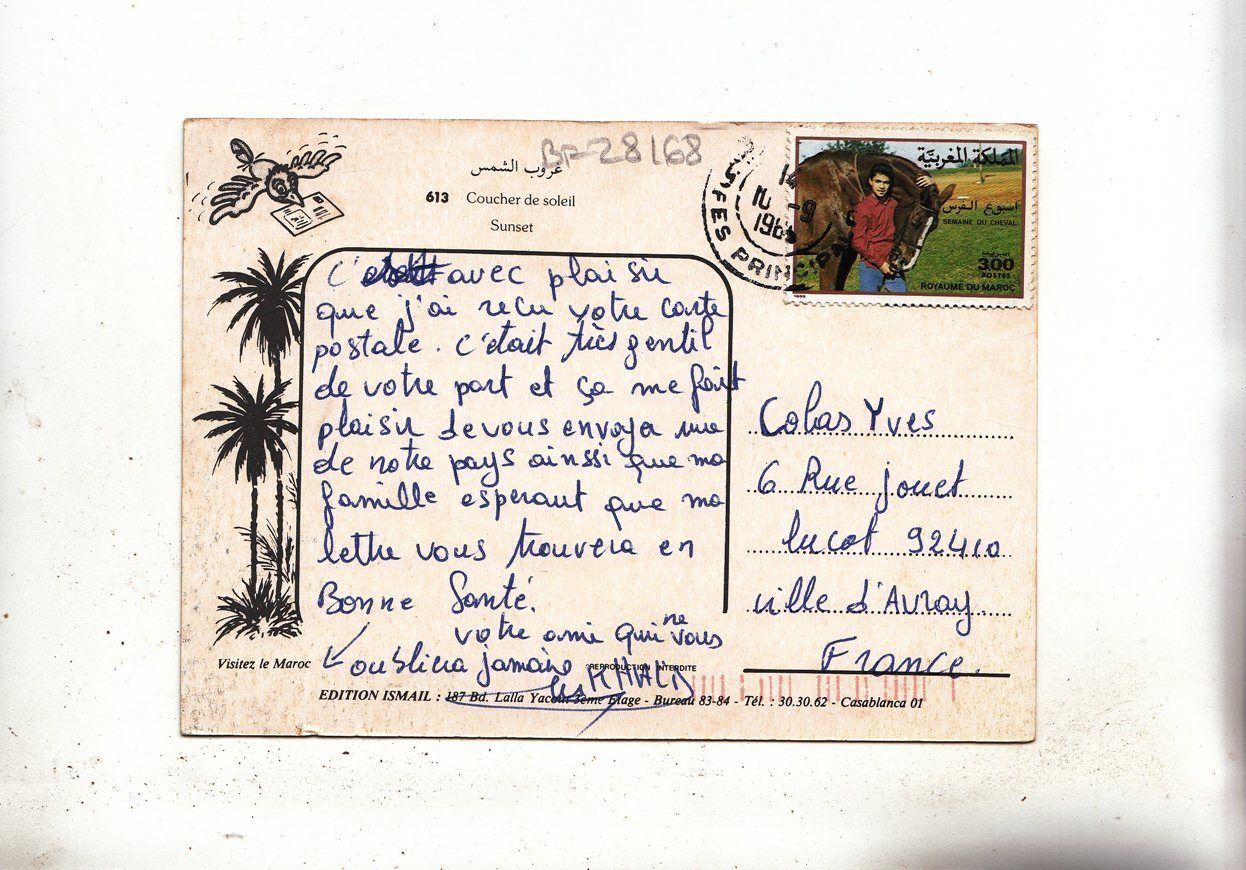 BF-28168
غروب الشمس
613 Coucher de soleil
Sunset
FES PRINCIPAL
14
10 -9
المملكة المغربية
أسبوع الفرس
SEMAINE DU CHEVAL
3.00
POSTES
ROYAUME DU MAROC
C' avec plaisir
que j'ai recu votre carte
postale. C'était très gentil
de votre part et ça me fait
plaisir de vous envoyer une
de notre pays ainssi que ma
famille esperant que ma
lettre vous trouvera en
Bonne Santé.
votre ami qui ne vous
oubliera jamais
les KHALID
Colas Yves
6 Rue jouet
lucot 92410
ville d'Avray
France.
Visitez le Maroc
REPRODUCTION INTERDITE
EDITION ISMAIL : 187 Bd. Lalla Yacout 3ème Etage - Bureau 83-84 - Tél. : 30.30.62 - Casablanca 01